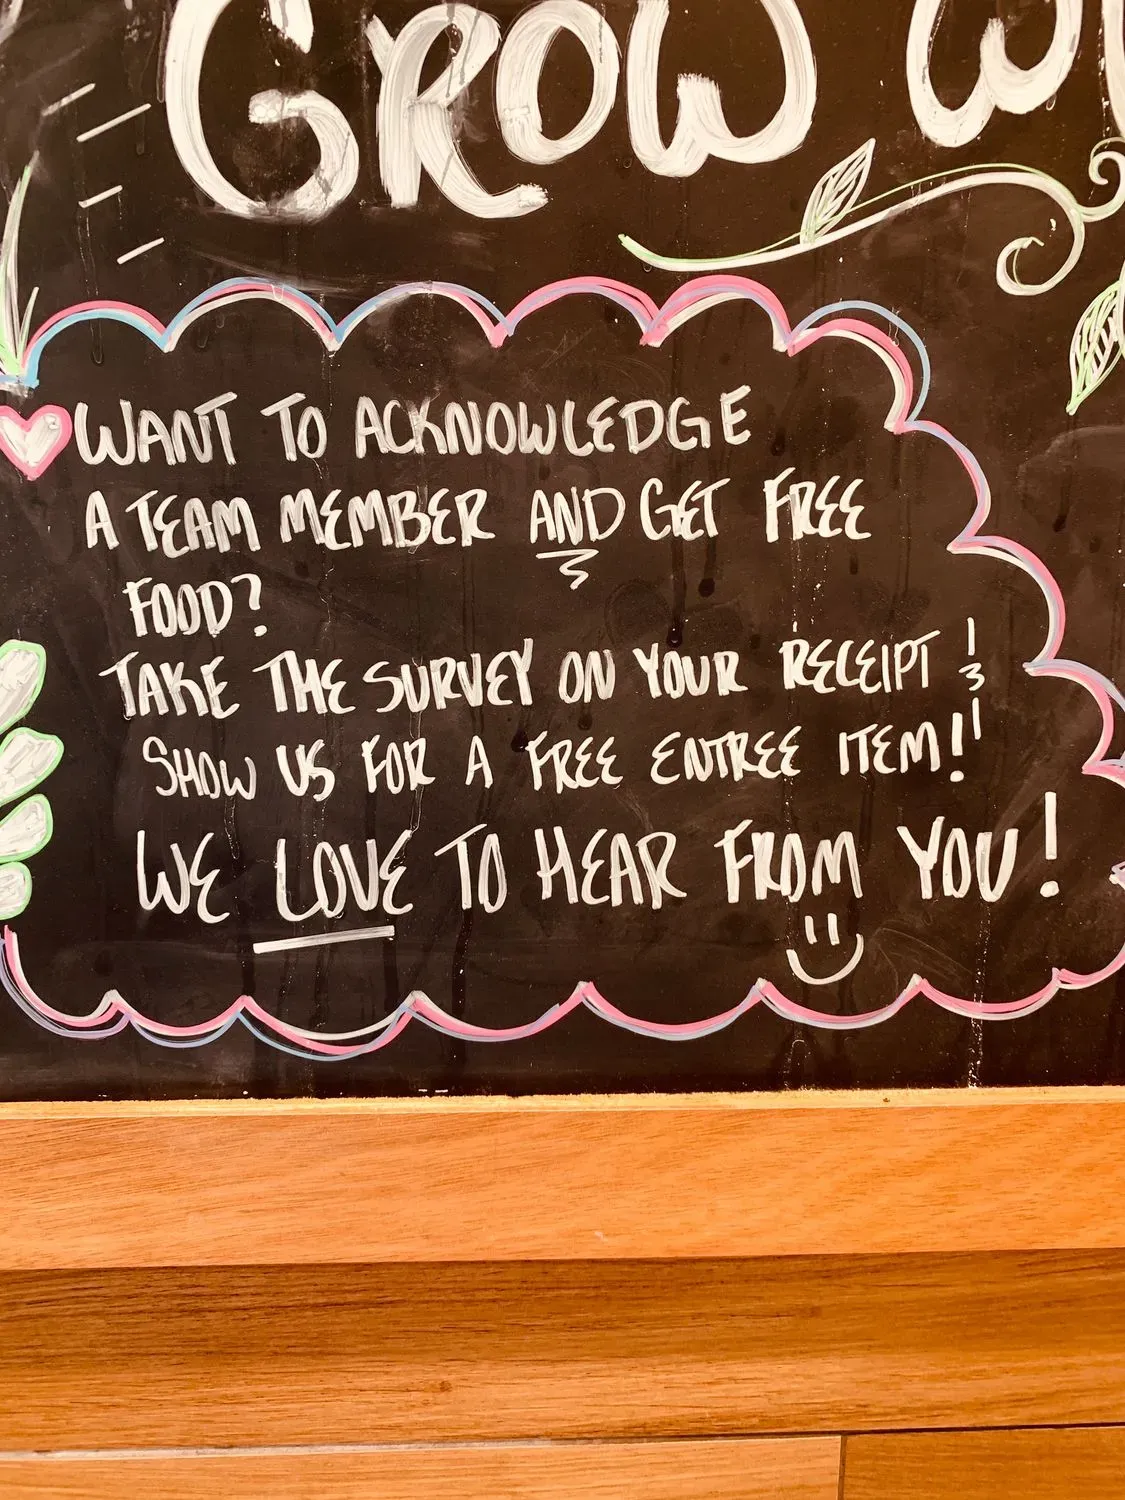 GROW
WANT TO ACKNOWLEDGE
A TEAM MEMBER AND GET FREE
FOOD?
TAKE THE SURVEY ON YOUR RECEIPT &
SHOW US FOR A FREE ENTREE ITEM!!
WE LOVE TO HEAR FROM YOU!